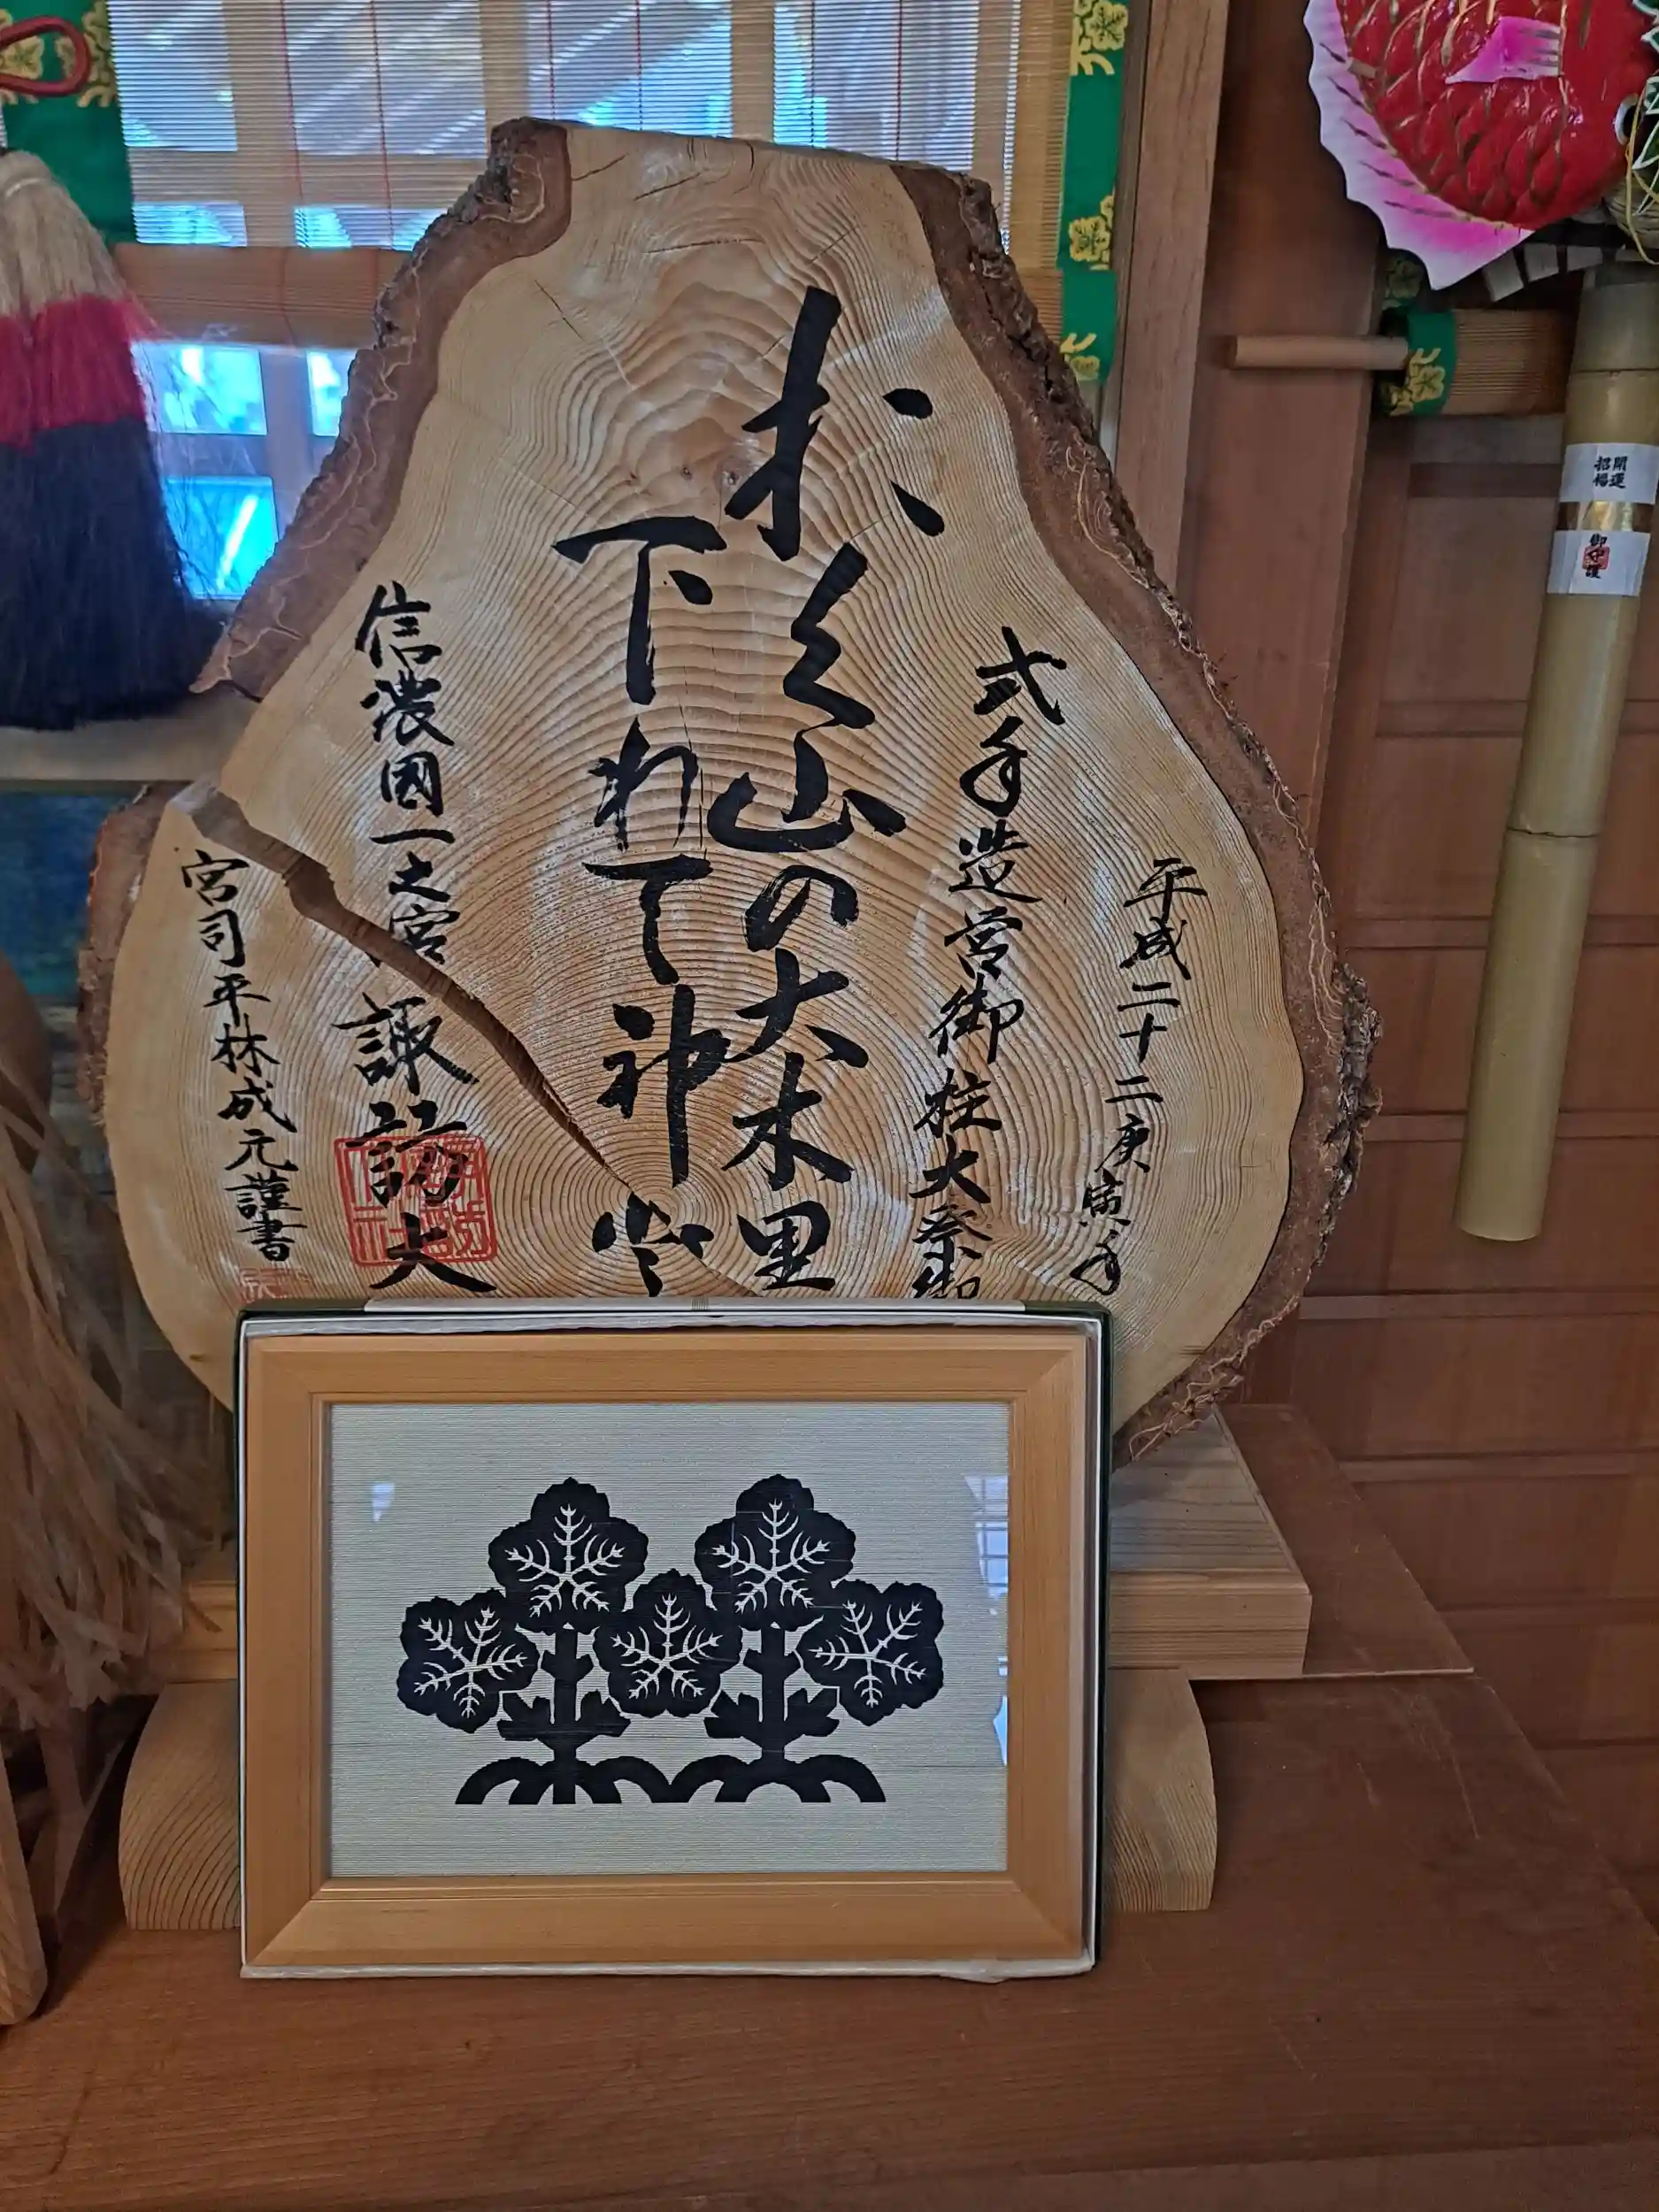 平成二十二庚寅年
式年造営御柱大祭御
おく山の大木里
下れて神と
信濃國一之宮 諏訪大
宮司平林成元謹書
開運
招福
御守護